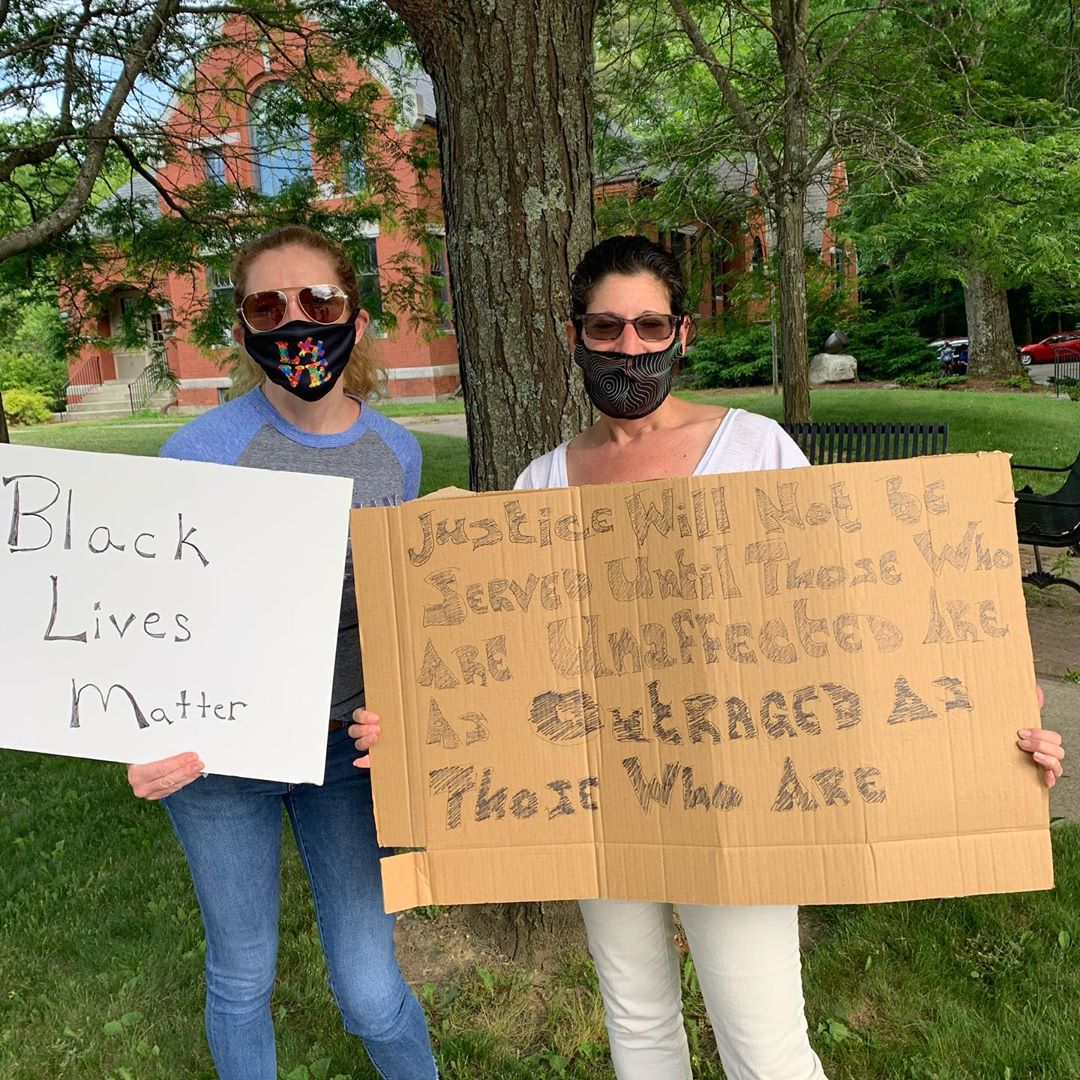 LOVE
Black
Lives
Matter
Justice Will Not be
Served Until Those Who
Are Unaffected Are
As Outraged As
Those Who Are